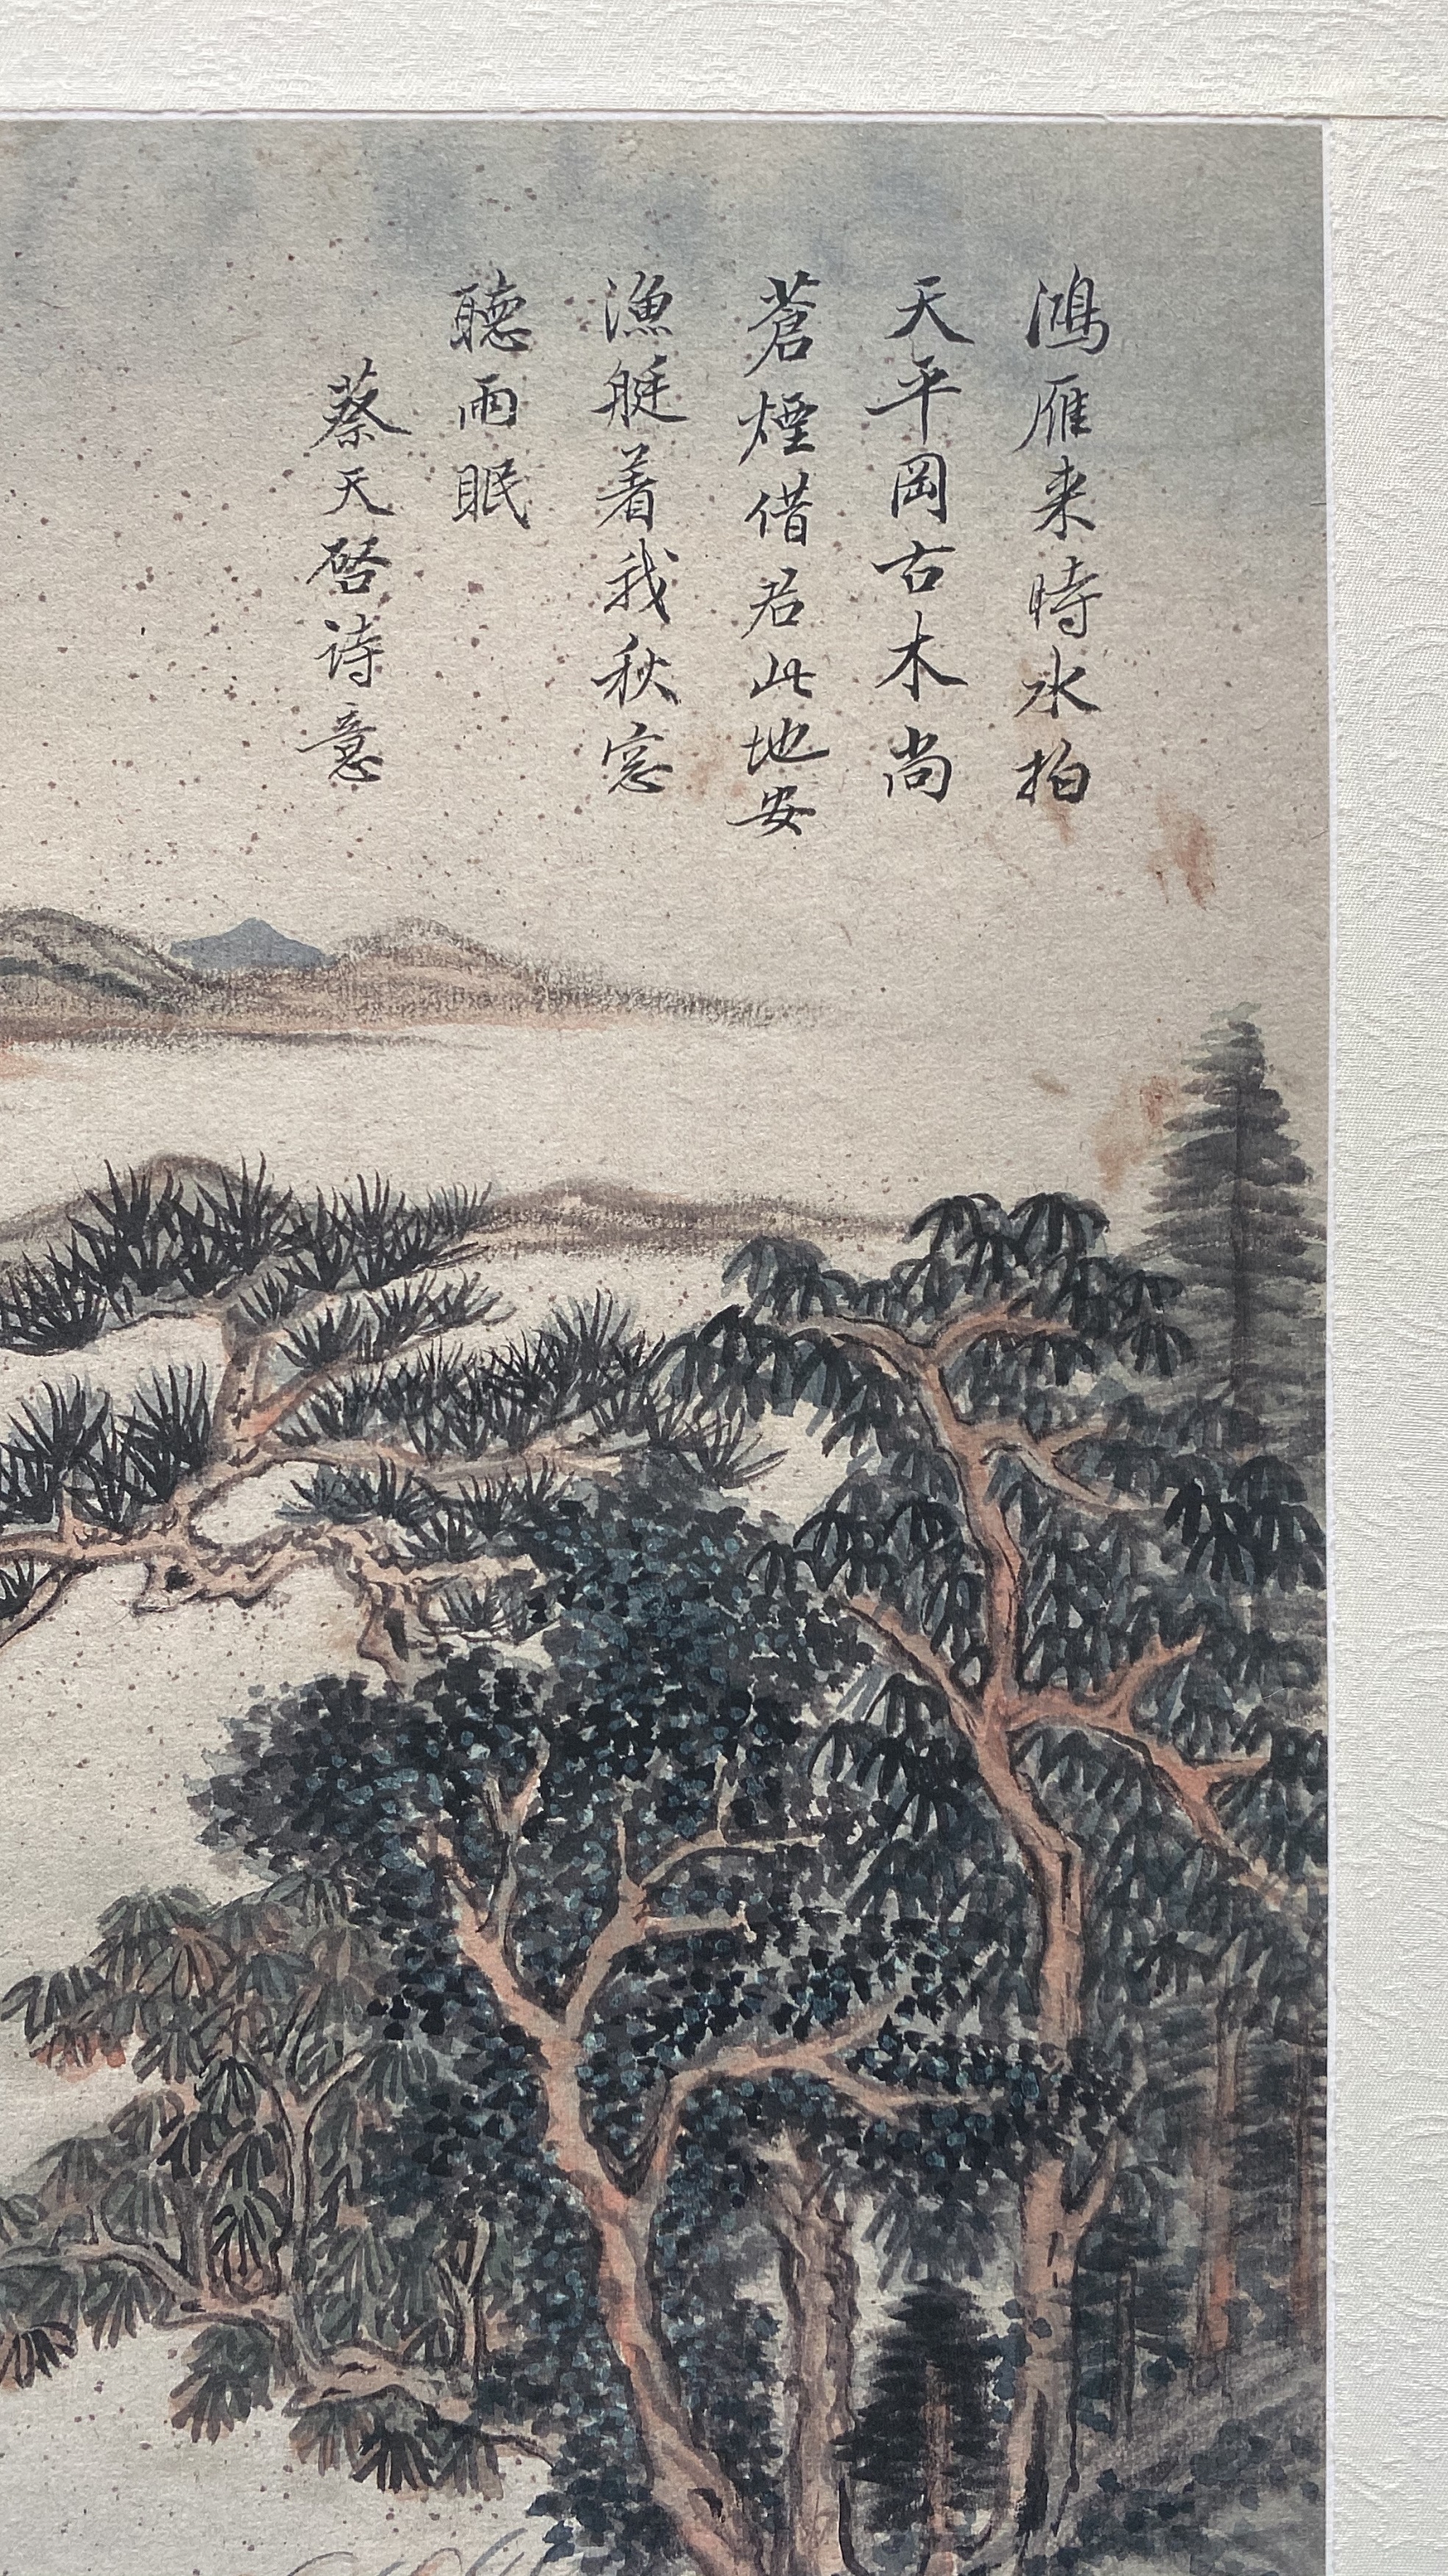 鴻雁来時水拍
天平岡古木尚
蒼煙借君此地安
漁艇着我秋窓
聽雨眠
蔡天啓詩意